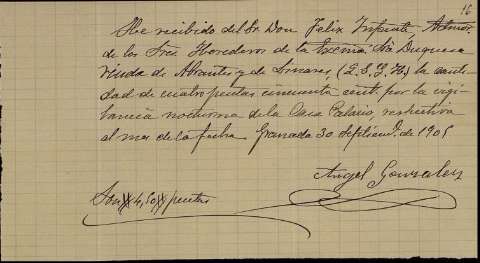 16
He recibido del Sr. Don Felix Infante, Admor.
de los Sres. Herederos de la Excma. Sra. Duquesa
viuda de Abrantes y de Linares, (Q.S.G.H.) la canti-
dad de cuatro pesetas cincuenta cnt. por la vigi-
lancia nocturna de la Casa Palacio, respectiva
al mes de la fecha. Granada 30 Septiemb. de 1905
Angel Gonzalez
Son # 4,50 # pesetas